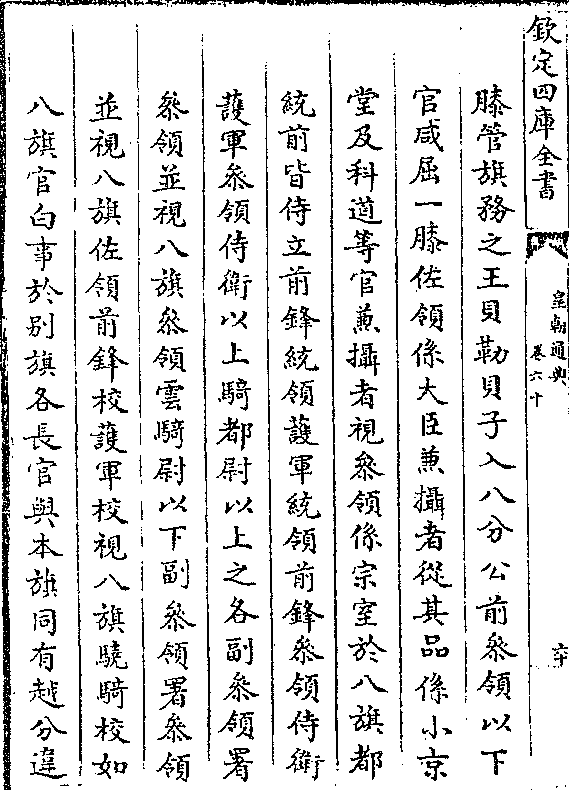 欽定四庫全書
皇朝通典
卷六十
六十
膝管旗務之王貝勒貝子入八分公前叅領以下
官咸屈一膝佐領係大臣兼攝者從其品係小京
堂及科道等官兼攝者視叅領係宗室於八旗都
統前皆侍立前鋒統領護軍統領前鋒叅領侍衛
護軍叅領侍衛以上騎都尉以上之各副叅領署
叅領並視八旗叅領雲騎尉以下副叅領署叅領
並視八旗佐領前鋒校護軍校視八旗驍騎校如
八旗官白事於别旗各長官與本旗同有越分違